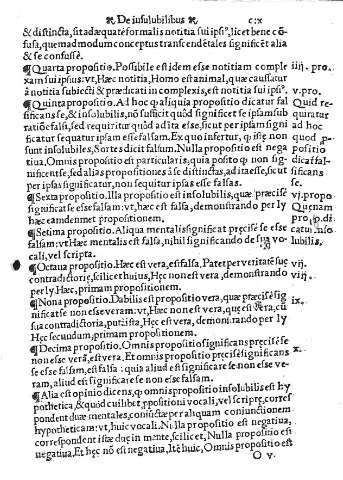 De insolubilibus c:x
& distincta, sit adæquatè formalis notitia sui ipsi⁹, licet bene cõ-
fusa, quemadmodum conceptus transcendẽtales significẽt alia
& se confusè.
¶Quarta propositio. Possibile est idem esse notitiam comple iiij. pro.
xam sui ipsius: vt, Hæc notitia, Homo est animal, quæ causatur
à notitia subiecti & prædicati incomplexis, est notitia sui ipsi⁹. v. pro.
¶Quinta propositio. Ad hoc q̃ aliqua propositio dicatur fal Quid re-
sificans se, & insolubilis, nõ sufficit quòd significet se ipsam sub quiratur
ratiõe falsi, sed requiritur quòd ad ita esse, sicut per ipsam signi ad hoc
ficatur sequatur ipsam esse falsam. Ex quo infertur, q̃ istę non quod p-
sunt insolubiles, Sortes dicit falsum. Nulla propositio est nega positio
tiua, Omnis propositio est particularis, quia posito q̃ non sig- dicat̃ fal-
nificent se, sed alias propositiones à se distinctas, ad ita esse, sicut sificans
per ipsas significatur, non sequitur ipsas esse falsas. se.
¶Sexta propositio. Illa propositio est insolubilis, quæ præcisè vj. propo
significat se esse falsam: vt, hæc est falsa, demonstrando per ly Quenam
hæc eamdem met propositionem. pro;p̃. di
¶Setima propositio. Aliqua mentalis significat præcisè se esse catur inso
falsam: vt, Hæc mentalis est falsa, nihil significando de sua vo- lubilis.
cali, vel scripta.
¶Octaua propositio. Hæc est vera, est falsa. Patet per veritatẽ suę vij.
contradictorię, scilicet huius, Hęc non est vera, demonstrando viij.
per ly Hæc, primam propositionem.
¶Nona propositio. Dabilis est propositio vera, quæ præcisè sig ix.
nificat se non esse veram: vt, Hæc non est vera, quę est vera, cũ
sua contradictoria, puta ista, Hęc est vera, demonstrando per ly
Hęc secundum, primam propositionem.
¶Decima propositio. Omnis propositio significans precisè se x.
non esse verã, est vera. Et omnis propositio pręcisè significans
se esse falsam, est falsa: quia aliud est significare se non esse ve-
ram, aliud est significare se non esse falsam.
¶Alia est opinio dicens, q̃ omnis propositio insolubilis est hy
pothetica, & quòd cuilibet ppositioni vocali, vel scriptę, corres
pondent duæ mentales, coniũctæ per aliquam coniunctionem
hypotheticam: vt, huic vocali. Nulla propositio est negatiua,
correspondent istæ duę in mente, scilicet, Nulla propositio est
negatiua, Et hęc nõ est negatiua, Itẽ huic, Omnis propositio est
O v.